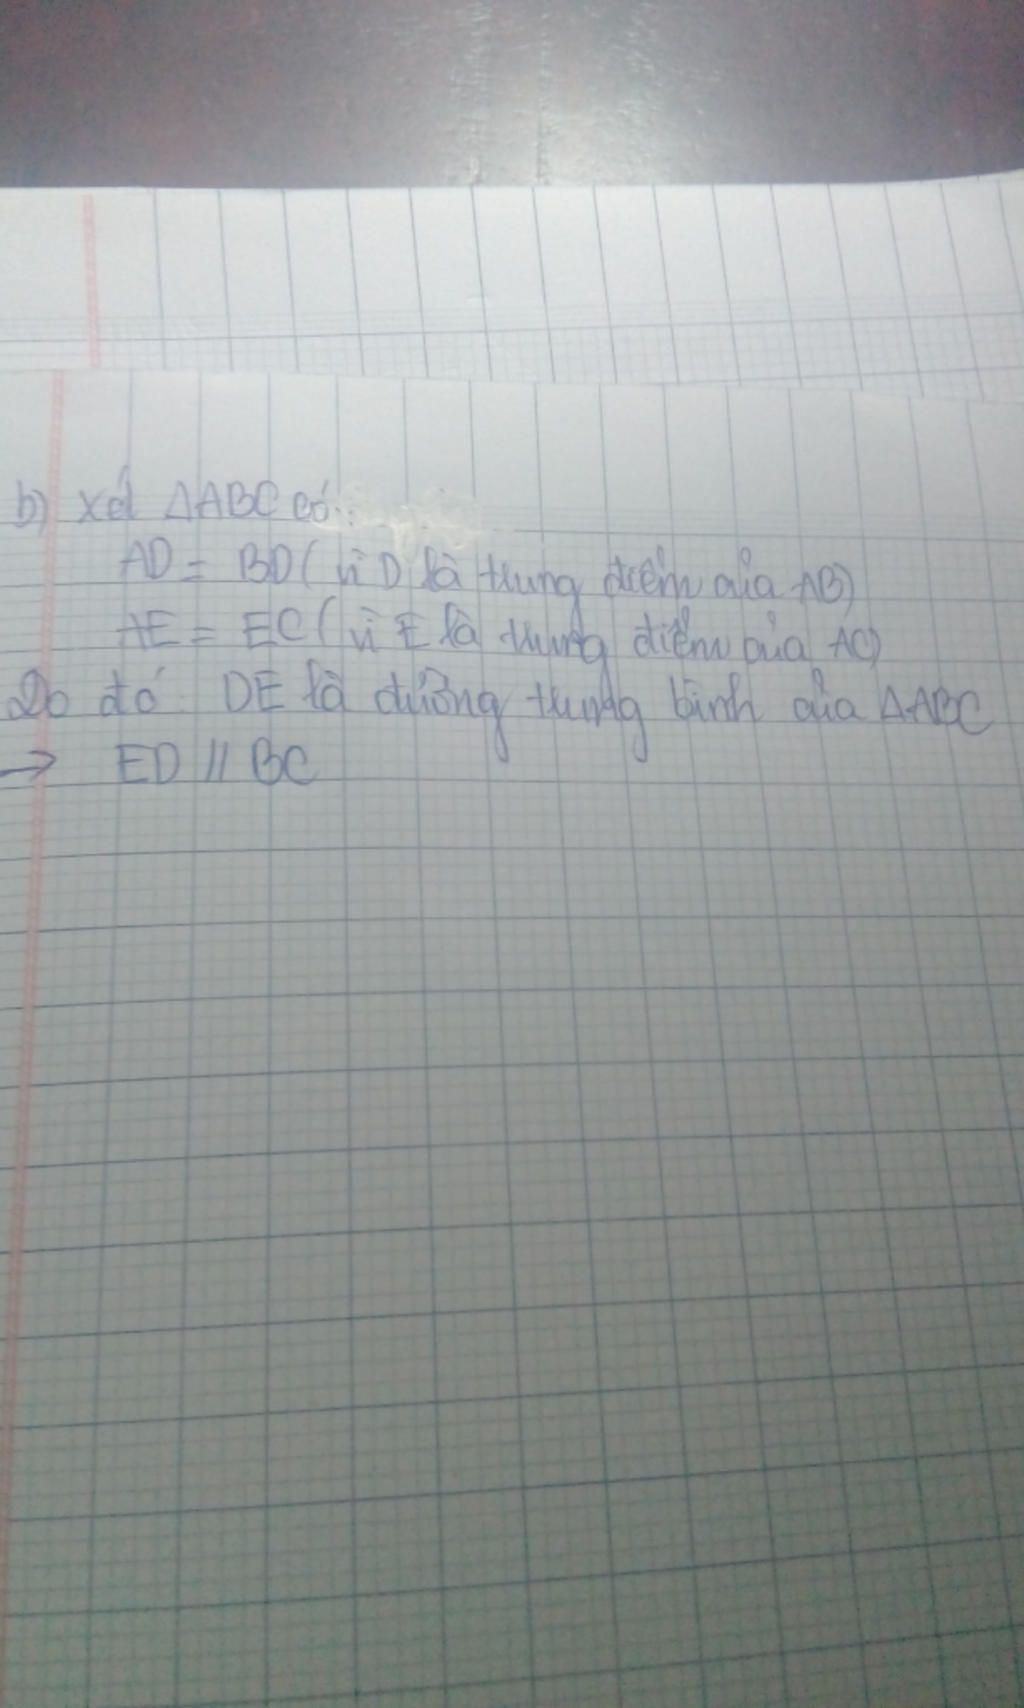 b) Xét ΔABC có:
AD = BD ( vì D là trung điểm của AB)
AE = EC ( vì E là trung điểm của AC)
Do đó: DE là đường trung bình của ΔABC
→ ED // BC